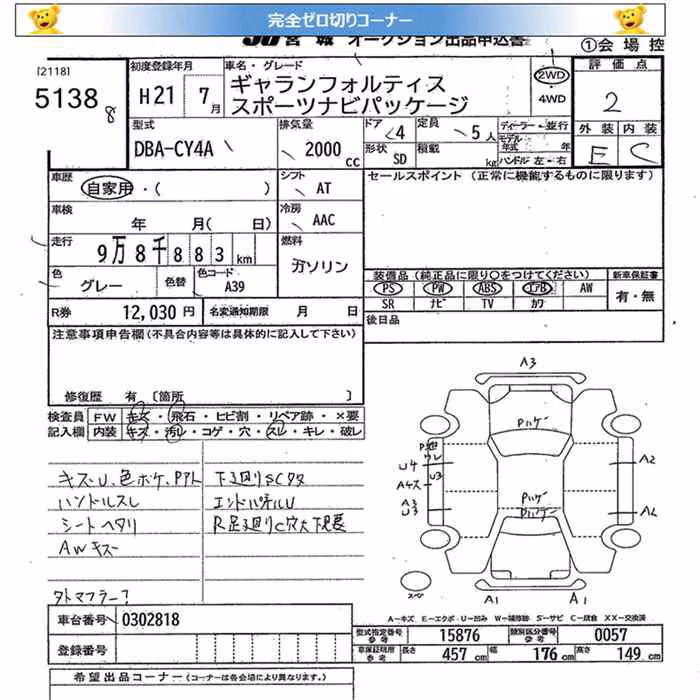 完全ゼロ切りコーナー
JU宮城 オークション出品申込書
①会場控
[2118]
5138 8
初度登録年月
H21 7月
車名・グレード
ギャランフォルティス
スポーツナビパッケージ
2WD
4WD
評価点
2
外装 内装
E C
型式
DBA-CY4A
排気量
2000 cc
ドア 4
定員 5人
ディーラー・並行
モデル年式 年
形状 SD
積載 kg
ハンドル 左・右
車歴
自家用・( )
シフト AT
セールスポイント (正常に機能するものに限ります)
車検
年 月( 日)
冷房 AAC
走行
9万8千883km
燃料
ガソリン
色
グレー
色替
色コード
A39
装備品(純正品に限り○をつけてください)
新車保証書
PS PW ABS エアB AW
有・無
SR ナビ TV カワ
R券 12,030円
名変通知期限 月 日
後日品
注意事項申告欄(不具合内容等は具体的に記入して下さい)
修復歴 有 [箇所 ]
検査員 FW キズ・飛石・ヒビ割・リペア跡・×要
記入欄 内装 キズ・汚レ・コゲ・穴・スレ・キレ・破レ
キズU、色ボケ、Pアト
ハンドルスレ
シートヘタリ
AWキズ
下廻りSCタタ
エンドパネルU
タトマフラー?
A3
Pハゲ
U4
U3
A4ス
A3
U3
A2
Pハゲ
A1
A1
A-キズ E-エクボ U-凹み W-補修跡 S-サビ C-腐食 XX-交換済
車台番号 0302818
登録番号
型式指定番号 参考 15876
類別区分番号 0057
車庫証明用 参考 長さ 457cm 幅 176cm 高さ 149cm
希望出品コーナー(コーナーは各会場により異なります。)